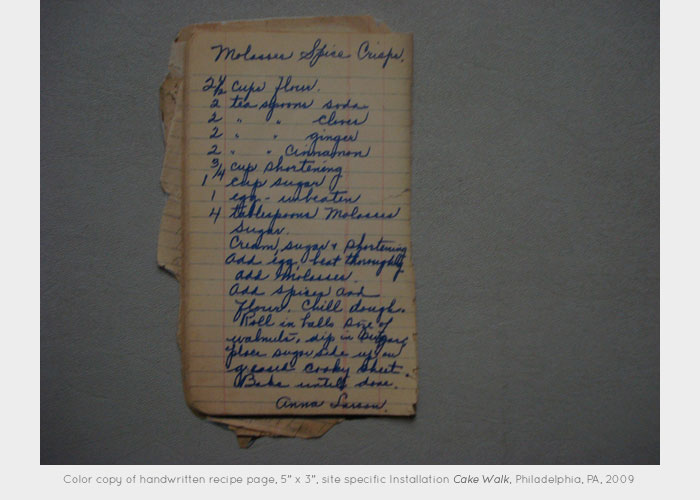 Molasses Spice Crisps.
2 1/2 cups flour.
2 teaspoons soda
2 " " cloves
2 " " ginger
2 " " Cinnamon
3/4 cup shortening
1 cup sugar
1 egg - unbeaten
4 tablespoons Molasses
Sugar.
Cream sugar & shortening
add egg, beat thoroughly
add Molasses.
add spices and
flour. Chill dough.
Roll in balls size of
walnuts, dip in sugar,
place sugar side up on
greased cooky sheet.
Bake until done.
Anna Larson.
Color copy of handwritten recipe page, 5" x 3", site specific Installation Cake Walk, Philadelphia, PA, 2009